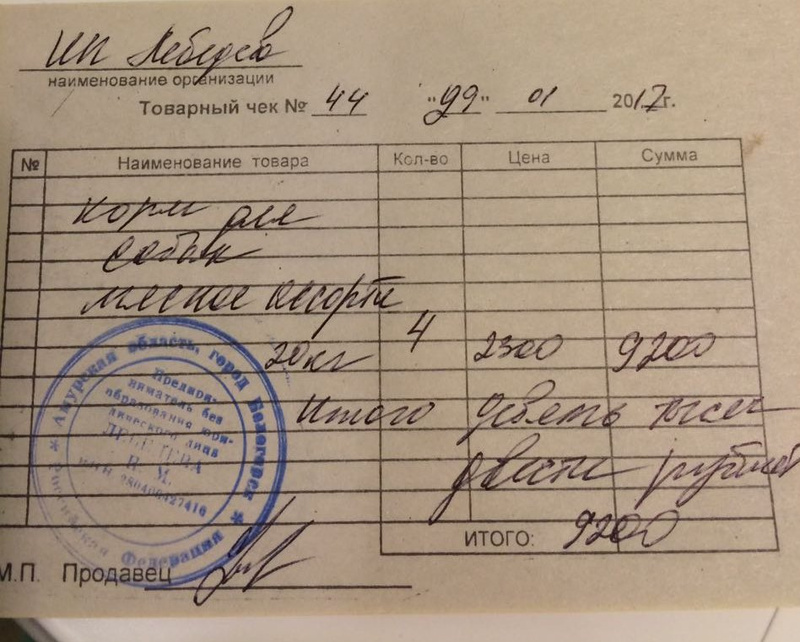 ИП Лебедев
наименование организации
Товарный чек № 44 "29" 01 2017г.
№ Наименование товара Кол-во Цена Сумма
корм для
собак
мясное ассорти
20кг 4 2300 9200
Итого девять тысяч
двести рублей
ИТОГО: 9200
М.П. Продавец
Амурская область, город Белогорск
Российская Федерация
Предпри-
ниматель без
образования юри-
дического лица